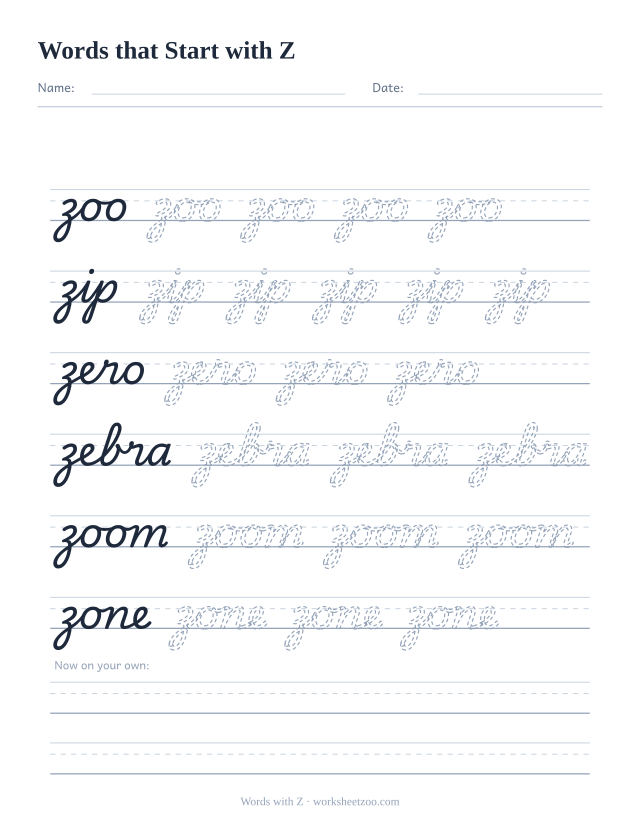 Words that Start with Z
Name: Date:
zoo zoo zoo zoo zoo
zip zip zip zip zip zip
zero zero zero zero
zebra zebra zebra zebra
zoom zoom zoom zoom
zone zone zone zone
Now on your own:
Words with Z · worksheetzoo.com